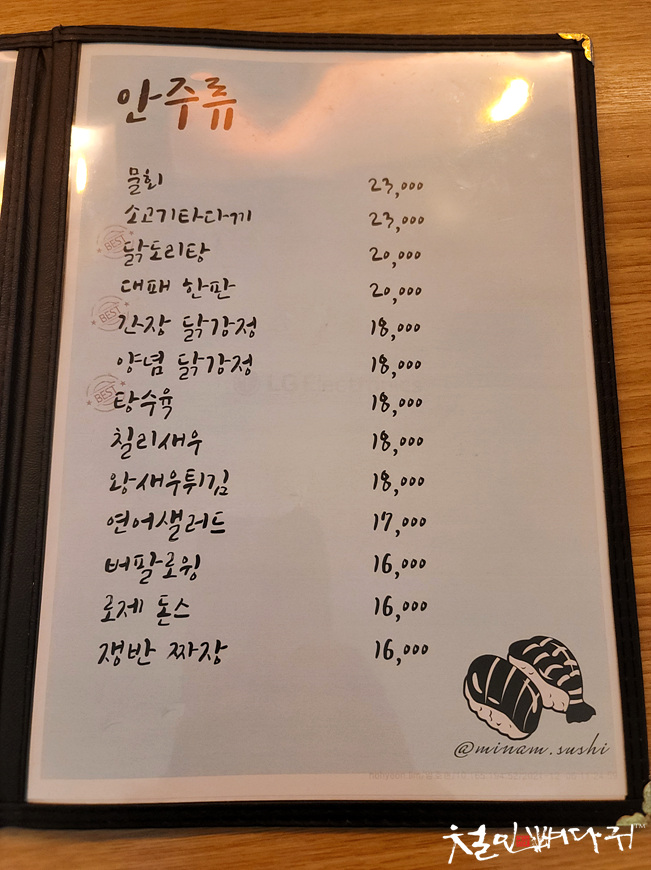 안주류
물회 23,000
소고기타다끼 23,000
BEST 닭도리탕 20,000
대패 한판 20,000
BEST 간장 닭강정 18,000
양념 닭강정 18,000
BEST 탕수육 18,000
칠리새우 18,000
왕새우튀김 18,000
연어샐러드 17,000
버팔로윙 16,000
로제 돈스 16,000
쟁반 짜장 16,000
@minam.sushi